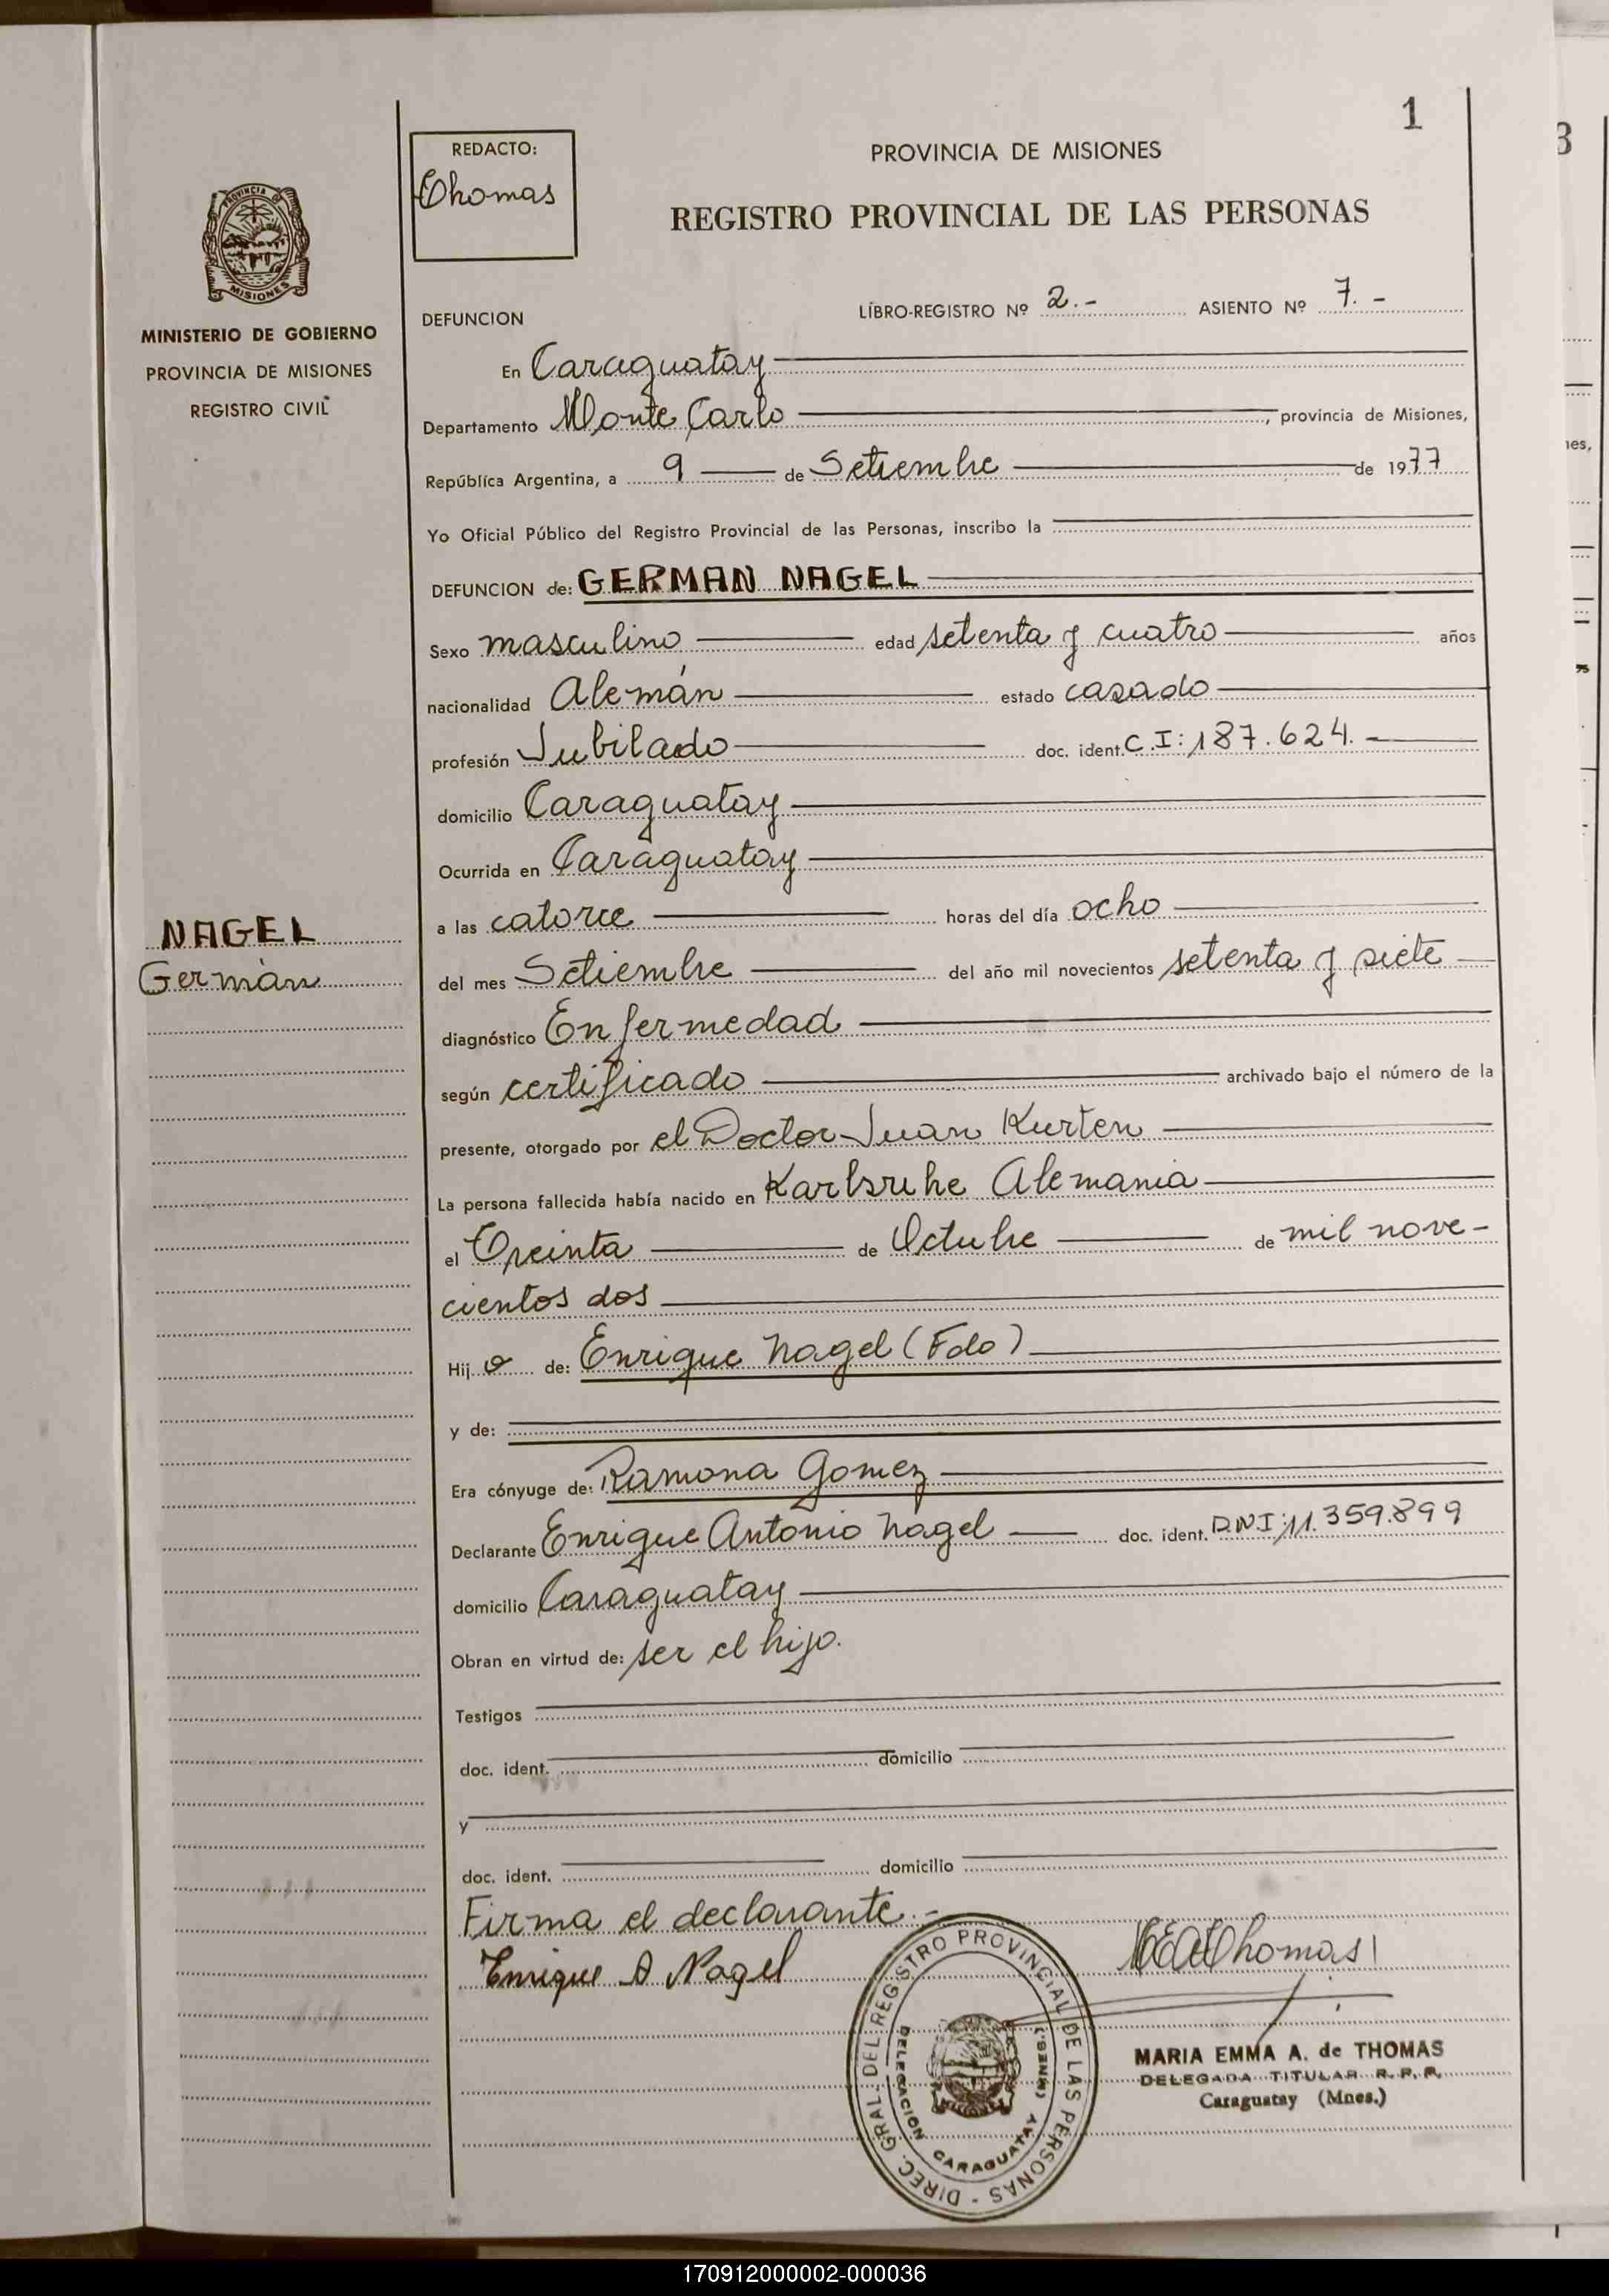 1
3
REDACTO:
Thomas
PROVINCIA DE MISIONES
REGISTRO PROVINCIAL DE LAS PERSONAS
PROVINCIA DE
MISIONES
MINISTERIO DE GOBIERNO
PROVINCIA DE MISIONES
REGISTRO CIVIL
DEFUNCION
LIBRO-REGISTRO Nº 2.- ASIENTO Nº 7.-
En Caraguatay
Departamento Monte Carlo, provincia de Misiones,
República Argentina, a 9 de Setiembre de 1977
Yo Oficial Público del Registro Provincial de las Personas, inscribo la
DEFUNCION de: GERMAN NAGEL
Sexo masculino edad setenta y cuatro años
nacionalidad Alemán estado casado
profesión Jubilado doc. ident. C.I: 187.624.-
domicilio Caraguatay
Ocurrida en Caraguatay
NAGEL
Germán
a las catorce horas del día ocho
del mes Setiembre del año mil novecientos setenta y siete
diagnóstico Enfermedad
según certificado archivado bajo el número de la
presente, otorgado por el Doctor Juan Kurten
La persona fallecida había nacido en Karlsruhe Alemania
el Treinta de Octubre de mil nove-
cientos dos
Hijo de: Enrique Nagel (Fdo)
y de:
Era cónyuge de: Ramona Gomez
Declarante Enrique Antonio Nagel doc. ident. D.N.I: 11.359.899
domicilio Caraguatay
Obran en virtud de: ser el hijo.
Testigos
doc. ident. domicilio
y
doc. ident. domicilio
Firma el declarante.-
Enrique A Nagel
MEAThomas
DIREC. GRAL. DEL REGISTRO PROVINCIAL DE LAS PERSONAS -
DELEGACION CARAGUATAY (MNES.)
MARIA EMMA A. de THOMAS
DELEGADA TITULAR R. P. P.
Caraguatay (Mnes.)
170912000002-000036